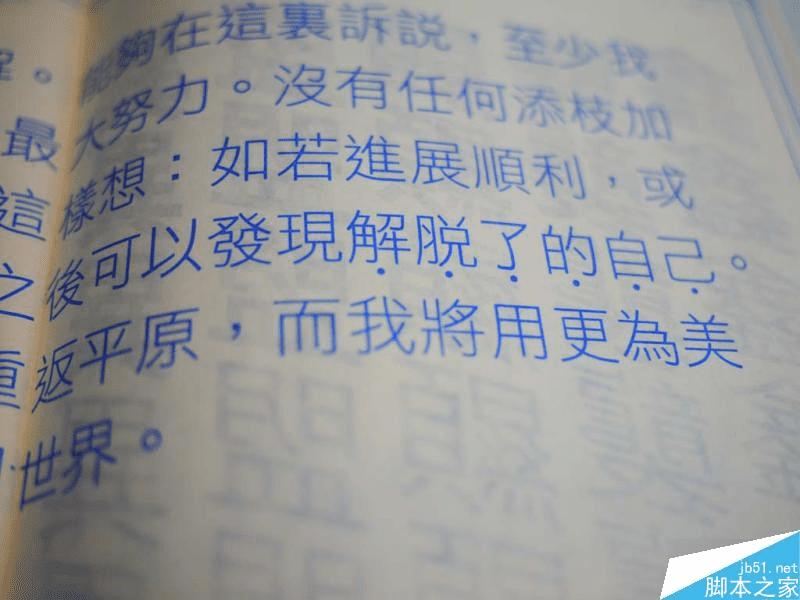 能夠在這裏訴説，至少我
解。大努力。沒有任何添枝加
最樣想：如若進展順利，或
這後可以發現解脱了的自己。
之返平原，而我將用更為美
重世界。
jb51.net
脚本之家